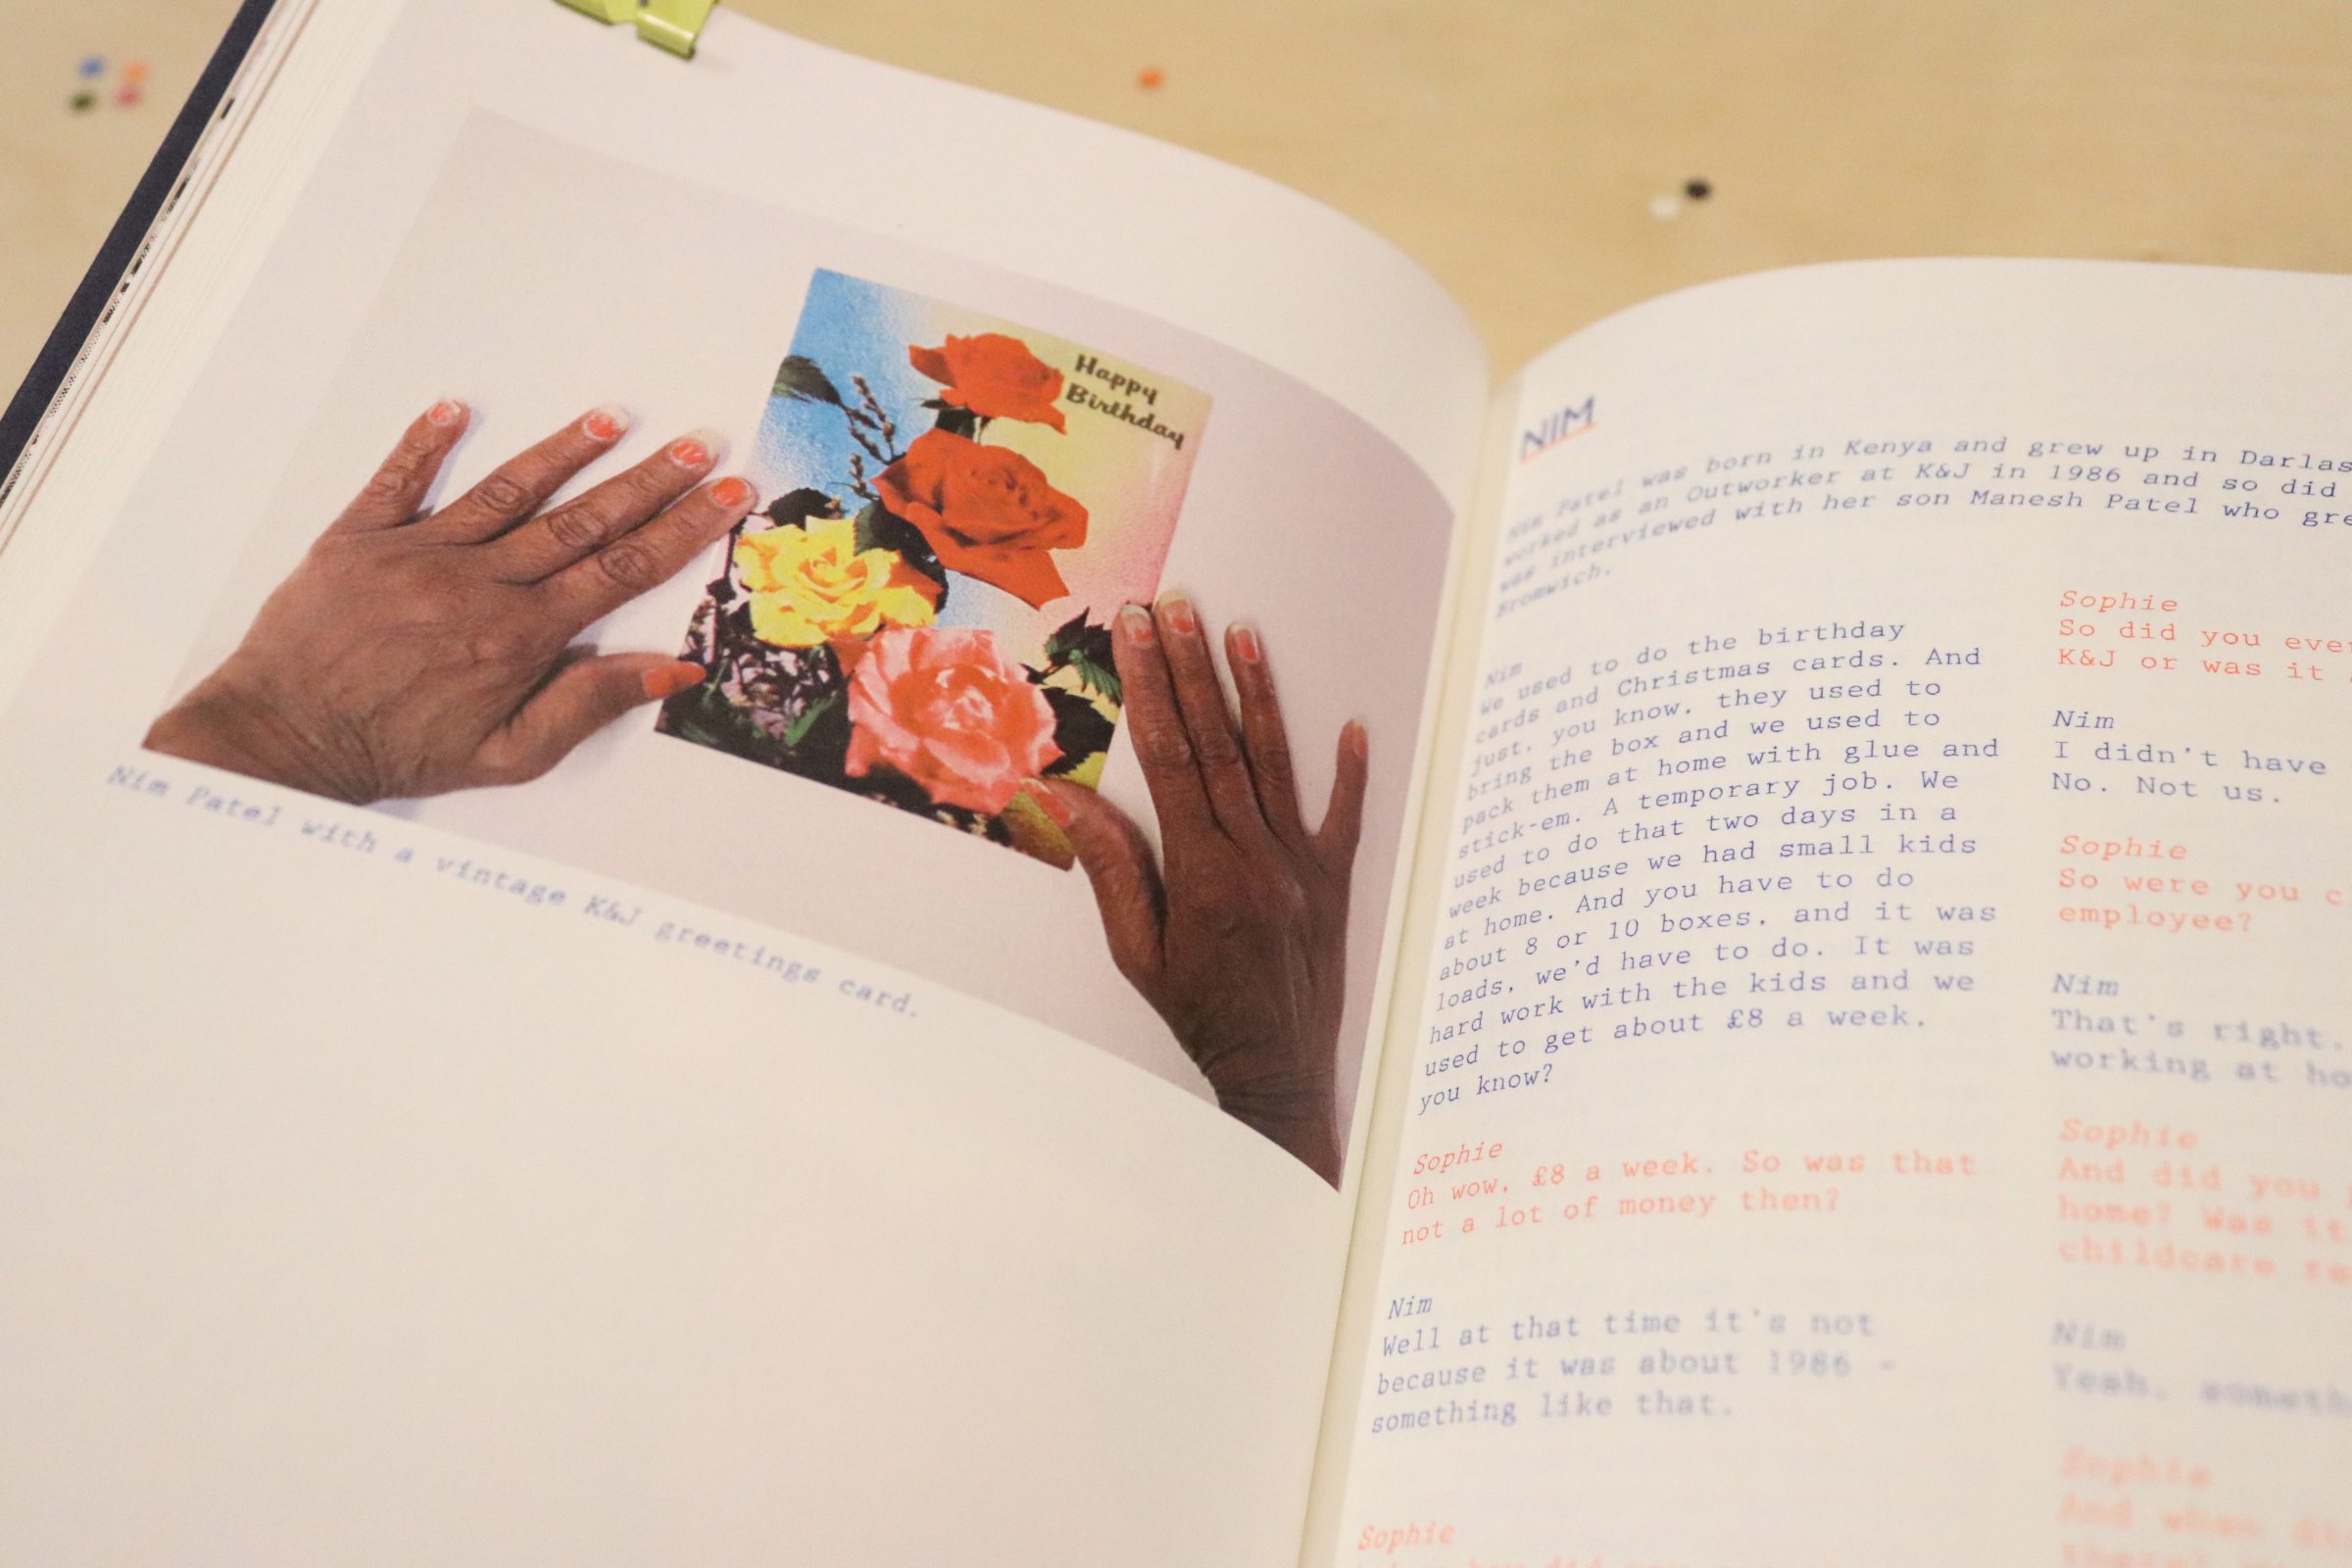 Happy
Birthday
Nim Patel with a vintage K&J greetings card.
NIM
Nim Patel was born in Kenya and grew up in Darlas
worked as an Outworker at K&J in 1986 and so did
was interviewed with her son Manesh Patel who gre
Bromwich.
Nim
We used to do the birthday
cards and Christmas cards. And
just, you know, they used to
bring the box and we used to
pack them at home with glue and
stick-em. A temporary job. We
used to do that two days in a
week because we had small kids
at home. And you have to do
about 8 or 10 boxes, and it was
loads, we'd have to do. It was
hard work with the kids and we
used to get about £8 a week,
you know?
Sophie
Oh wow, £8 a week. So was that
not a lot of money then?
Nim
Well at that time it's not
because it was about 1986 -
something like that.
Sophie
Sophie
So did you ever
K&J or was it
Nim
I didn't have
No. Not us.
Sophie
So were you c
employee?
Nim
That's right,
working at ho
Sophie
And did you
home? Was it
childcare re
Nim
Yeah, someth
Sophie
And when